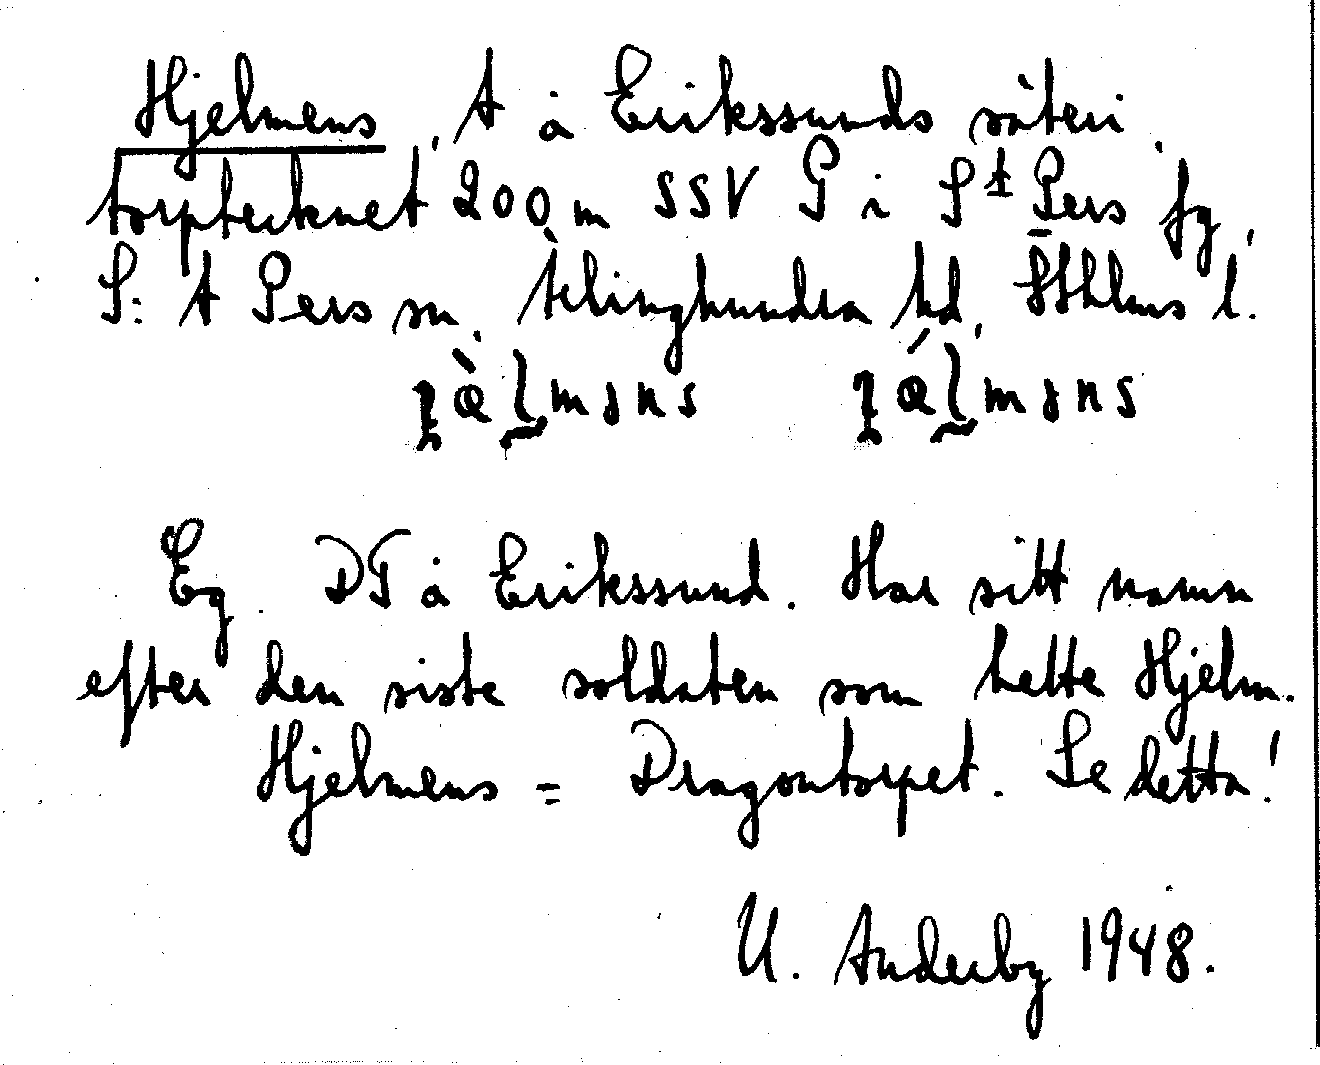 Hjelmens, t å Erikssunds säteri,
torptecknet 200 m SSV P i St Pers fg,
S:t Pers sn, Ärlinghundra hd, Sthlms l.
Eg. DT å Erikssund. Har sitt namn
efter den siste soldaten som hette Hjelm.
Hjelmens = Dragontorpet. Se detta!
U. Anderby 1948.